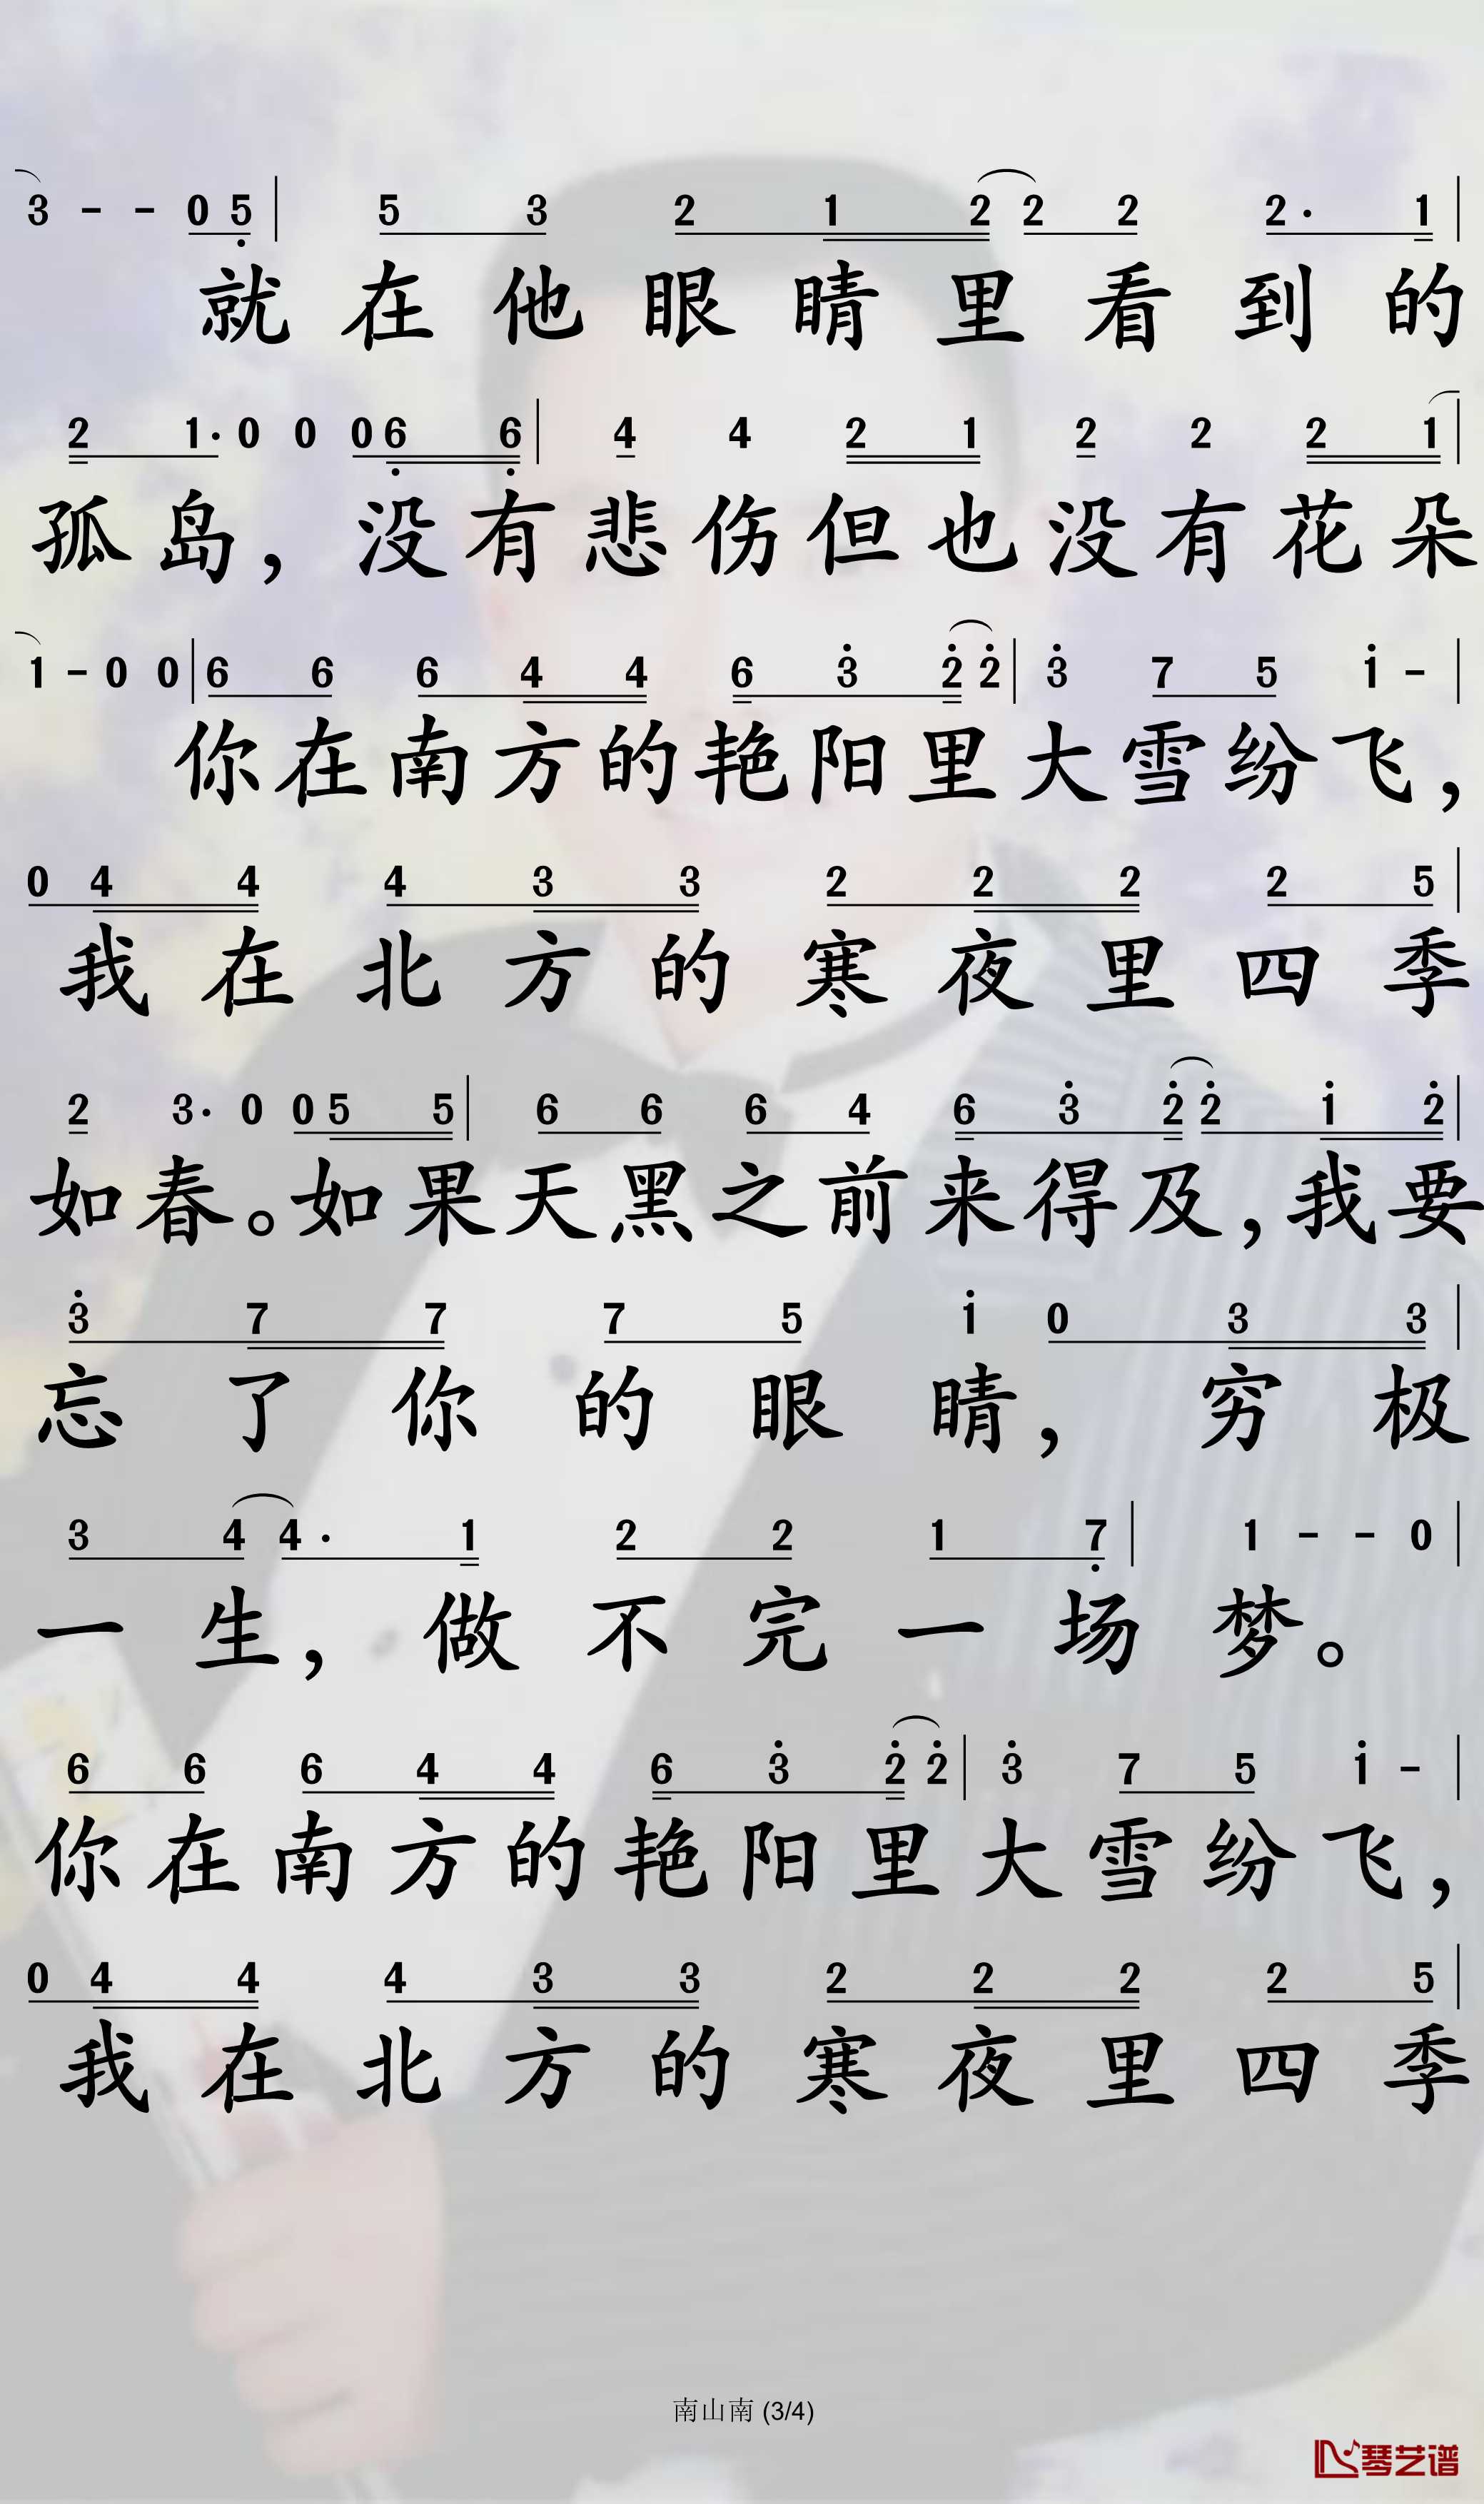 3 - - 0 5 | 5 3 2 1 2 2 2 2· 1 |
就在他眼睛里看到的
2 1· 0 0 0 6 6 | 4 4 2 1 2 2 2 1 |
孤岛，没有悲伤但也没有花朵
1 - 0 0 | 6 6 6 4 4 6 3 2 2 | 3 7 5 1 - |
你在南方的艳阳里大雪纷飞，
0 4 4 4 3 3 2 2 2 2 5 |
我在北方的寒夜里四季
2 3· 0 0 5 5 | 6 6 6 4 6 3 2 2 1 2 |
如春。如果天黑之前来得及，我要
3 7 7 7 5 1 0 3 3 |
忘了你的眼睛，穷极
3 4 4· 1 2 2 1 7 | 1 - - 0 |
一生，做不完一场梦。
6 6 6 4 4 6 3 2 2 | 3 7 5 1 - |
你在南方的艳阳里大雪纷飞，
0 4 4 4 3 3 2 2 2 2 5 |
我在北方的寒夜里四季
南山南 (3/4)
琴艺谱